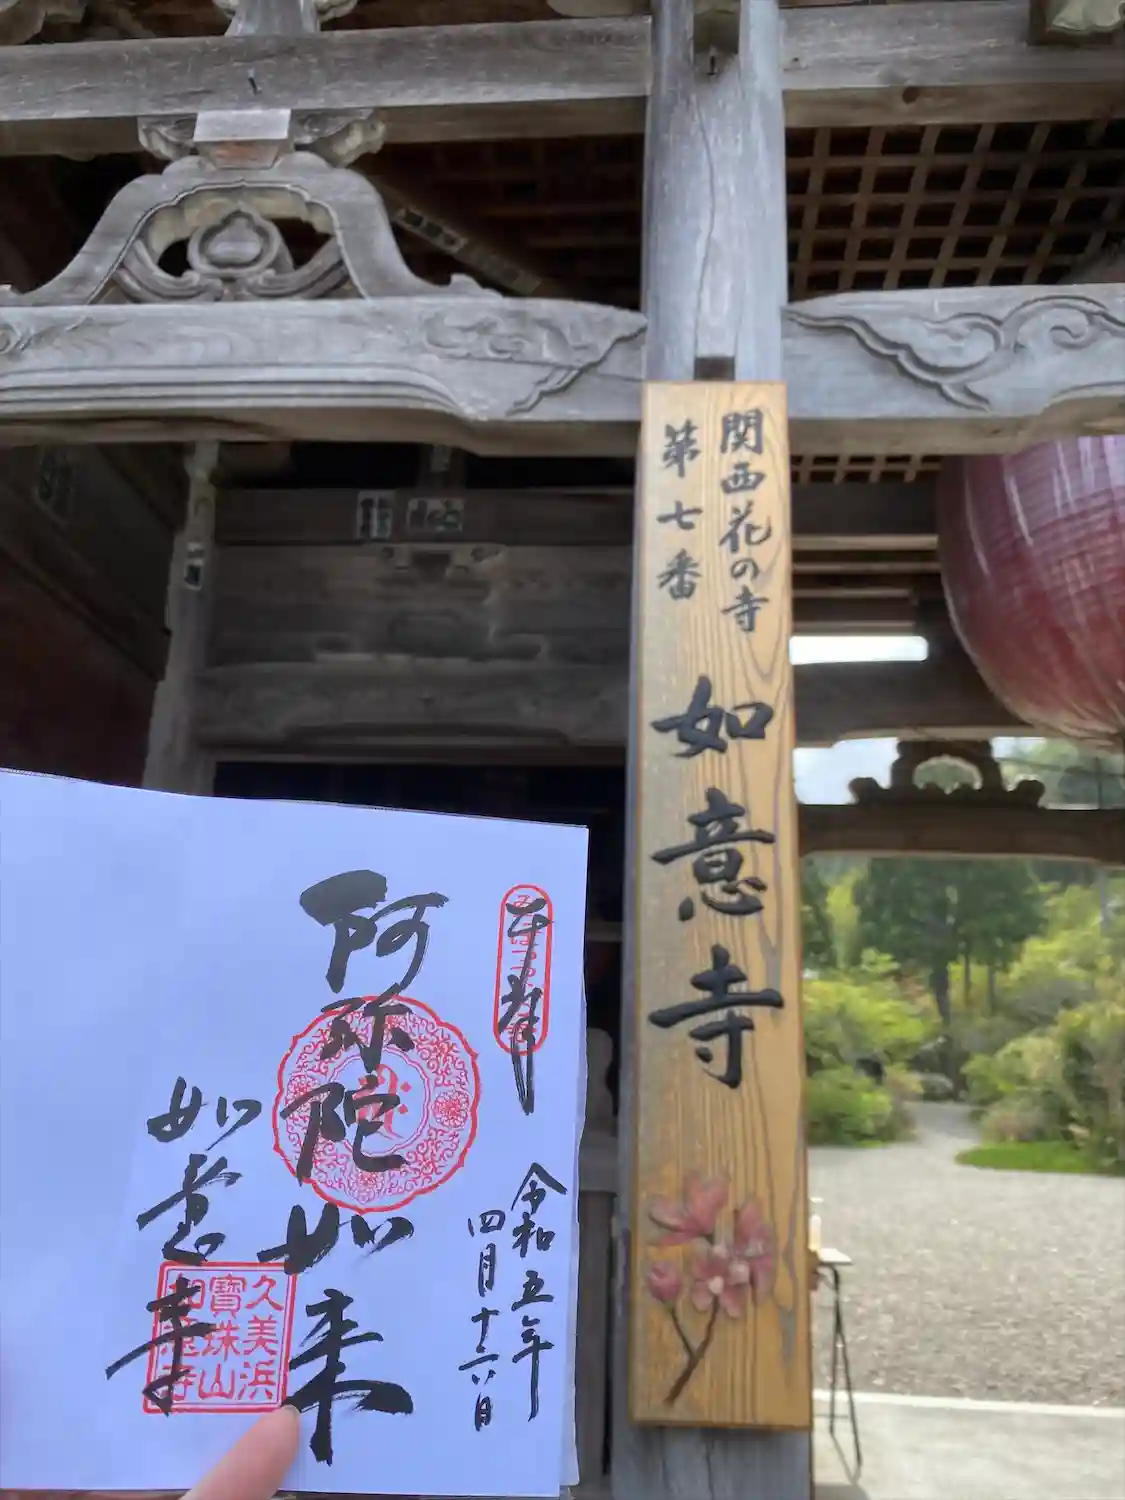 関西花の寺
第七番
如意寺
奉拝
令和五年
四月十六日
阿弥陀如来
如意寺
久美浜
寶珠山
如意寺